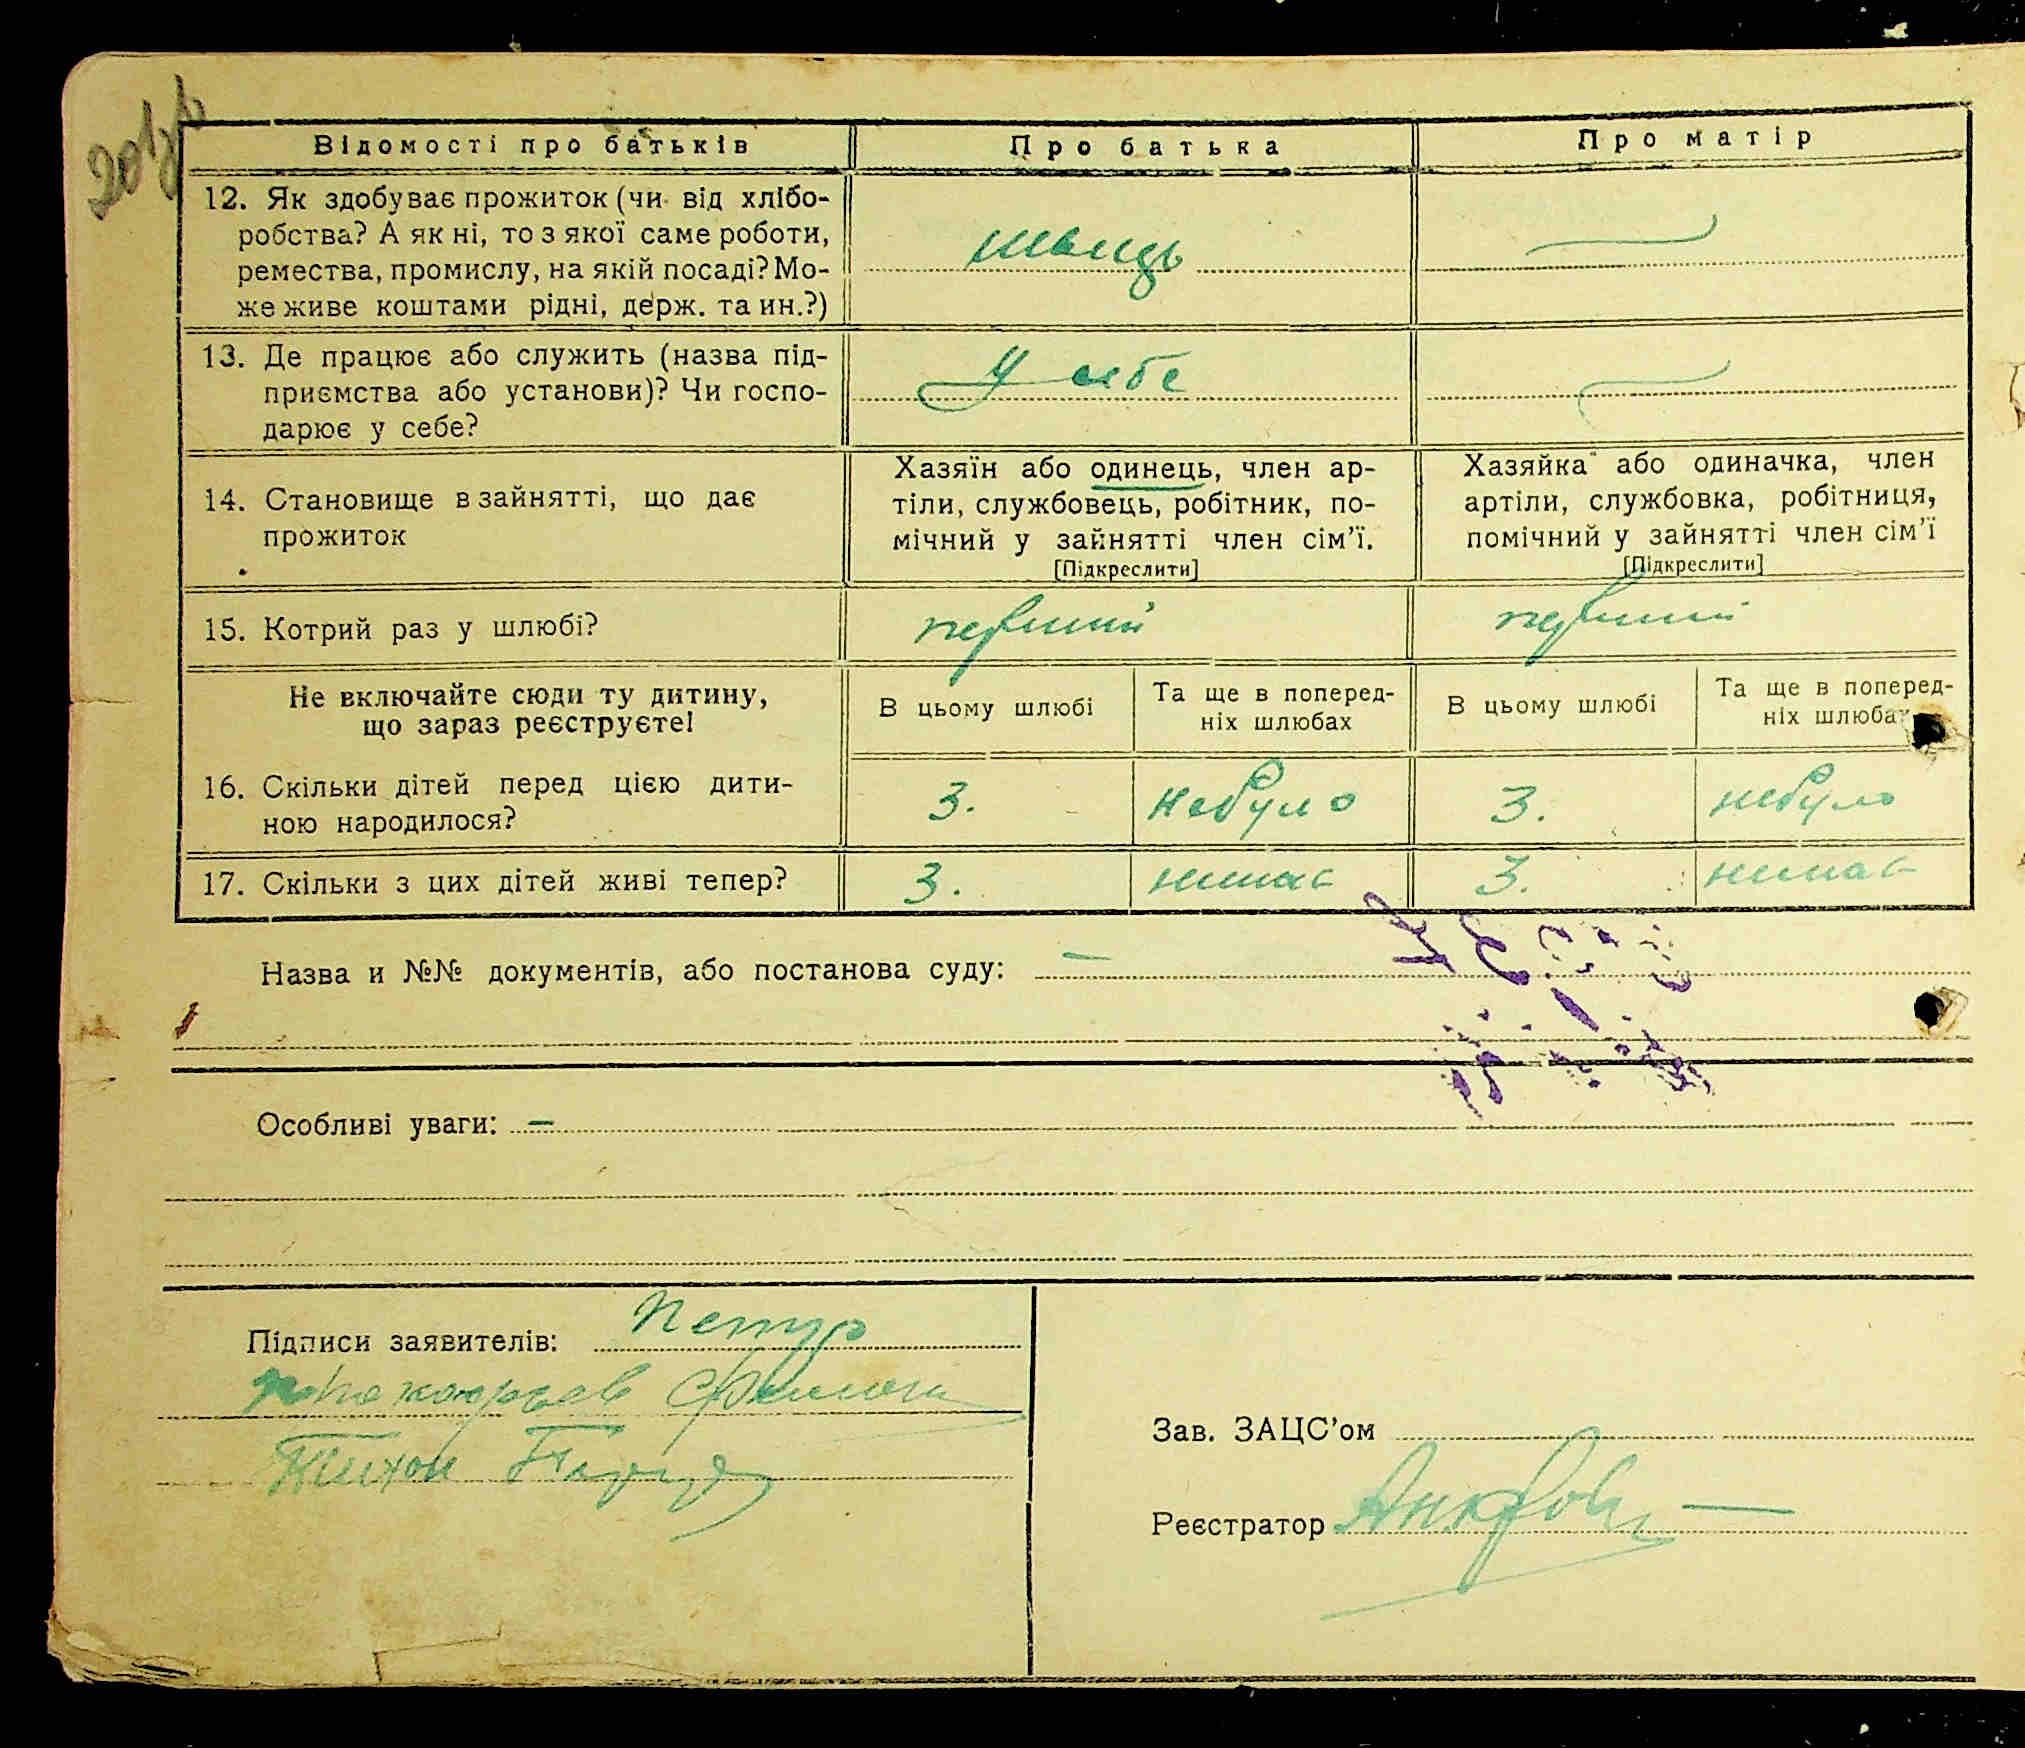 Відомості про батьків
Про батька
Про матір
12. Як здобуває прожиток (чи від хлібо-
робства? А як ні, то з якої саме роботи,
ремества, промислу, на якій посаді? Мо-
же живе коштами рідні, держ. та ин.?)
швець
13. Де працює або служить (назва під-
приємства або установи)? Чи госпо-
дарює у себе?
У себе
14. Становище в зайнятті, що дає
прожиток
Хазяїн або одинець, член ар-
тіли, службовець, робітник, по-
мічний у зайнятті член сім'ї.
[Підкреслити]
Хазяйка або одиначка, член
артіли, службовка, робітниця,
помічний у зайнятті член сім'ї
[Підкреслити]
15. Котрий раз у шлюбі?
перший
перший
Не включайте сюди ту дитину,
що зараз реєструєте!
В цьому шлюбі
Та ще в поперед-
ніх шлюбах
В цьому шлюбі
Та ще в поперед-
ніх шлюбах
16. Скільки дітей перед цією дити-
ною народилося?
3.
небуло
3.
небуло
17. Скільки з цих дітей живі тепер?
3.
немає
3.
немає
Назва и №№ документів, або постанова суду: —
Особливі уваги: —
Підписи заявителів: Петур
Тихон
Зав. ЗАЦС'ом
Реєстратор